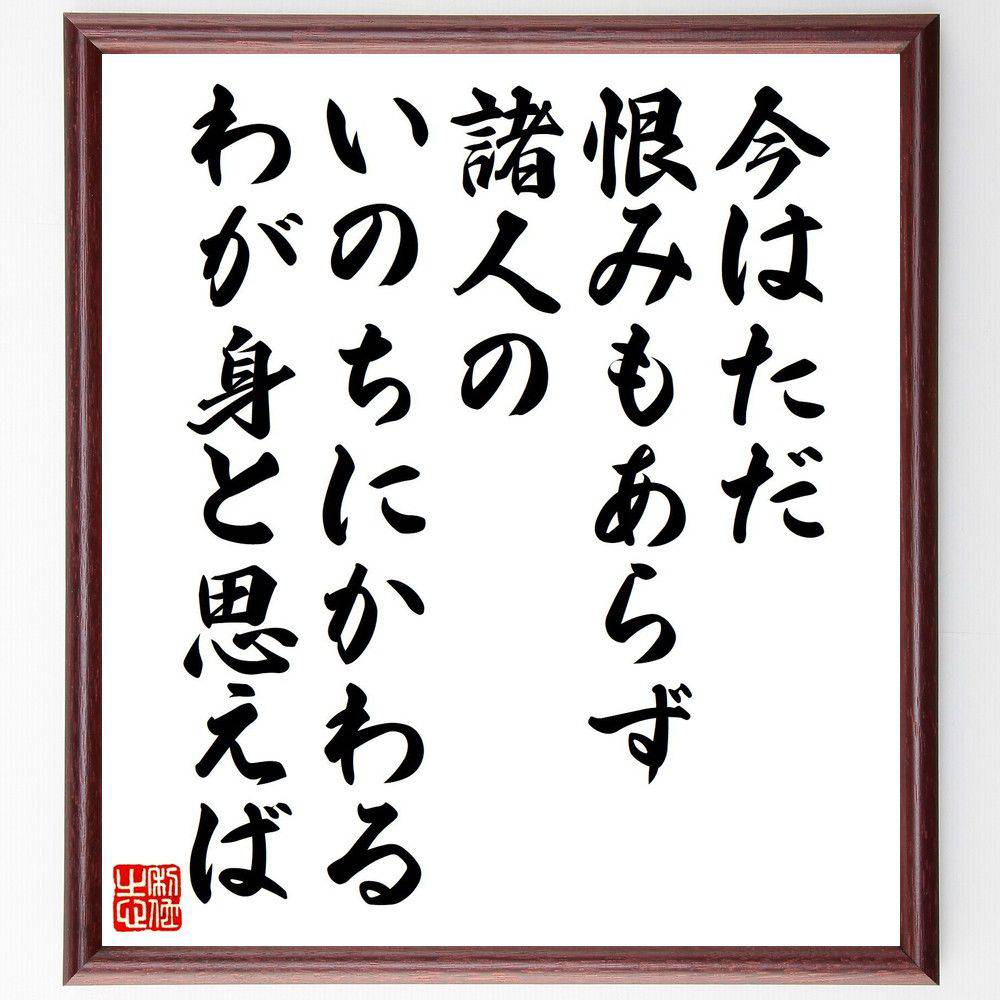 今はただ
恨みもあらず
諸人の
いのちにかわる
わが身と思えば